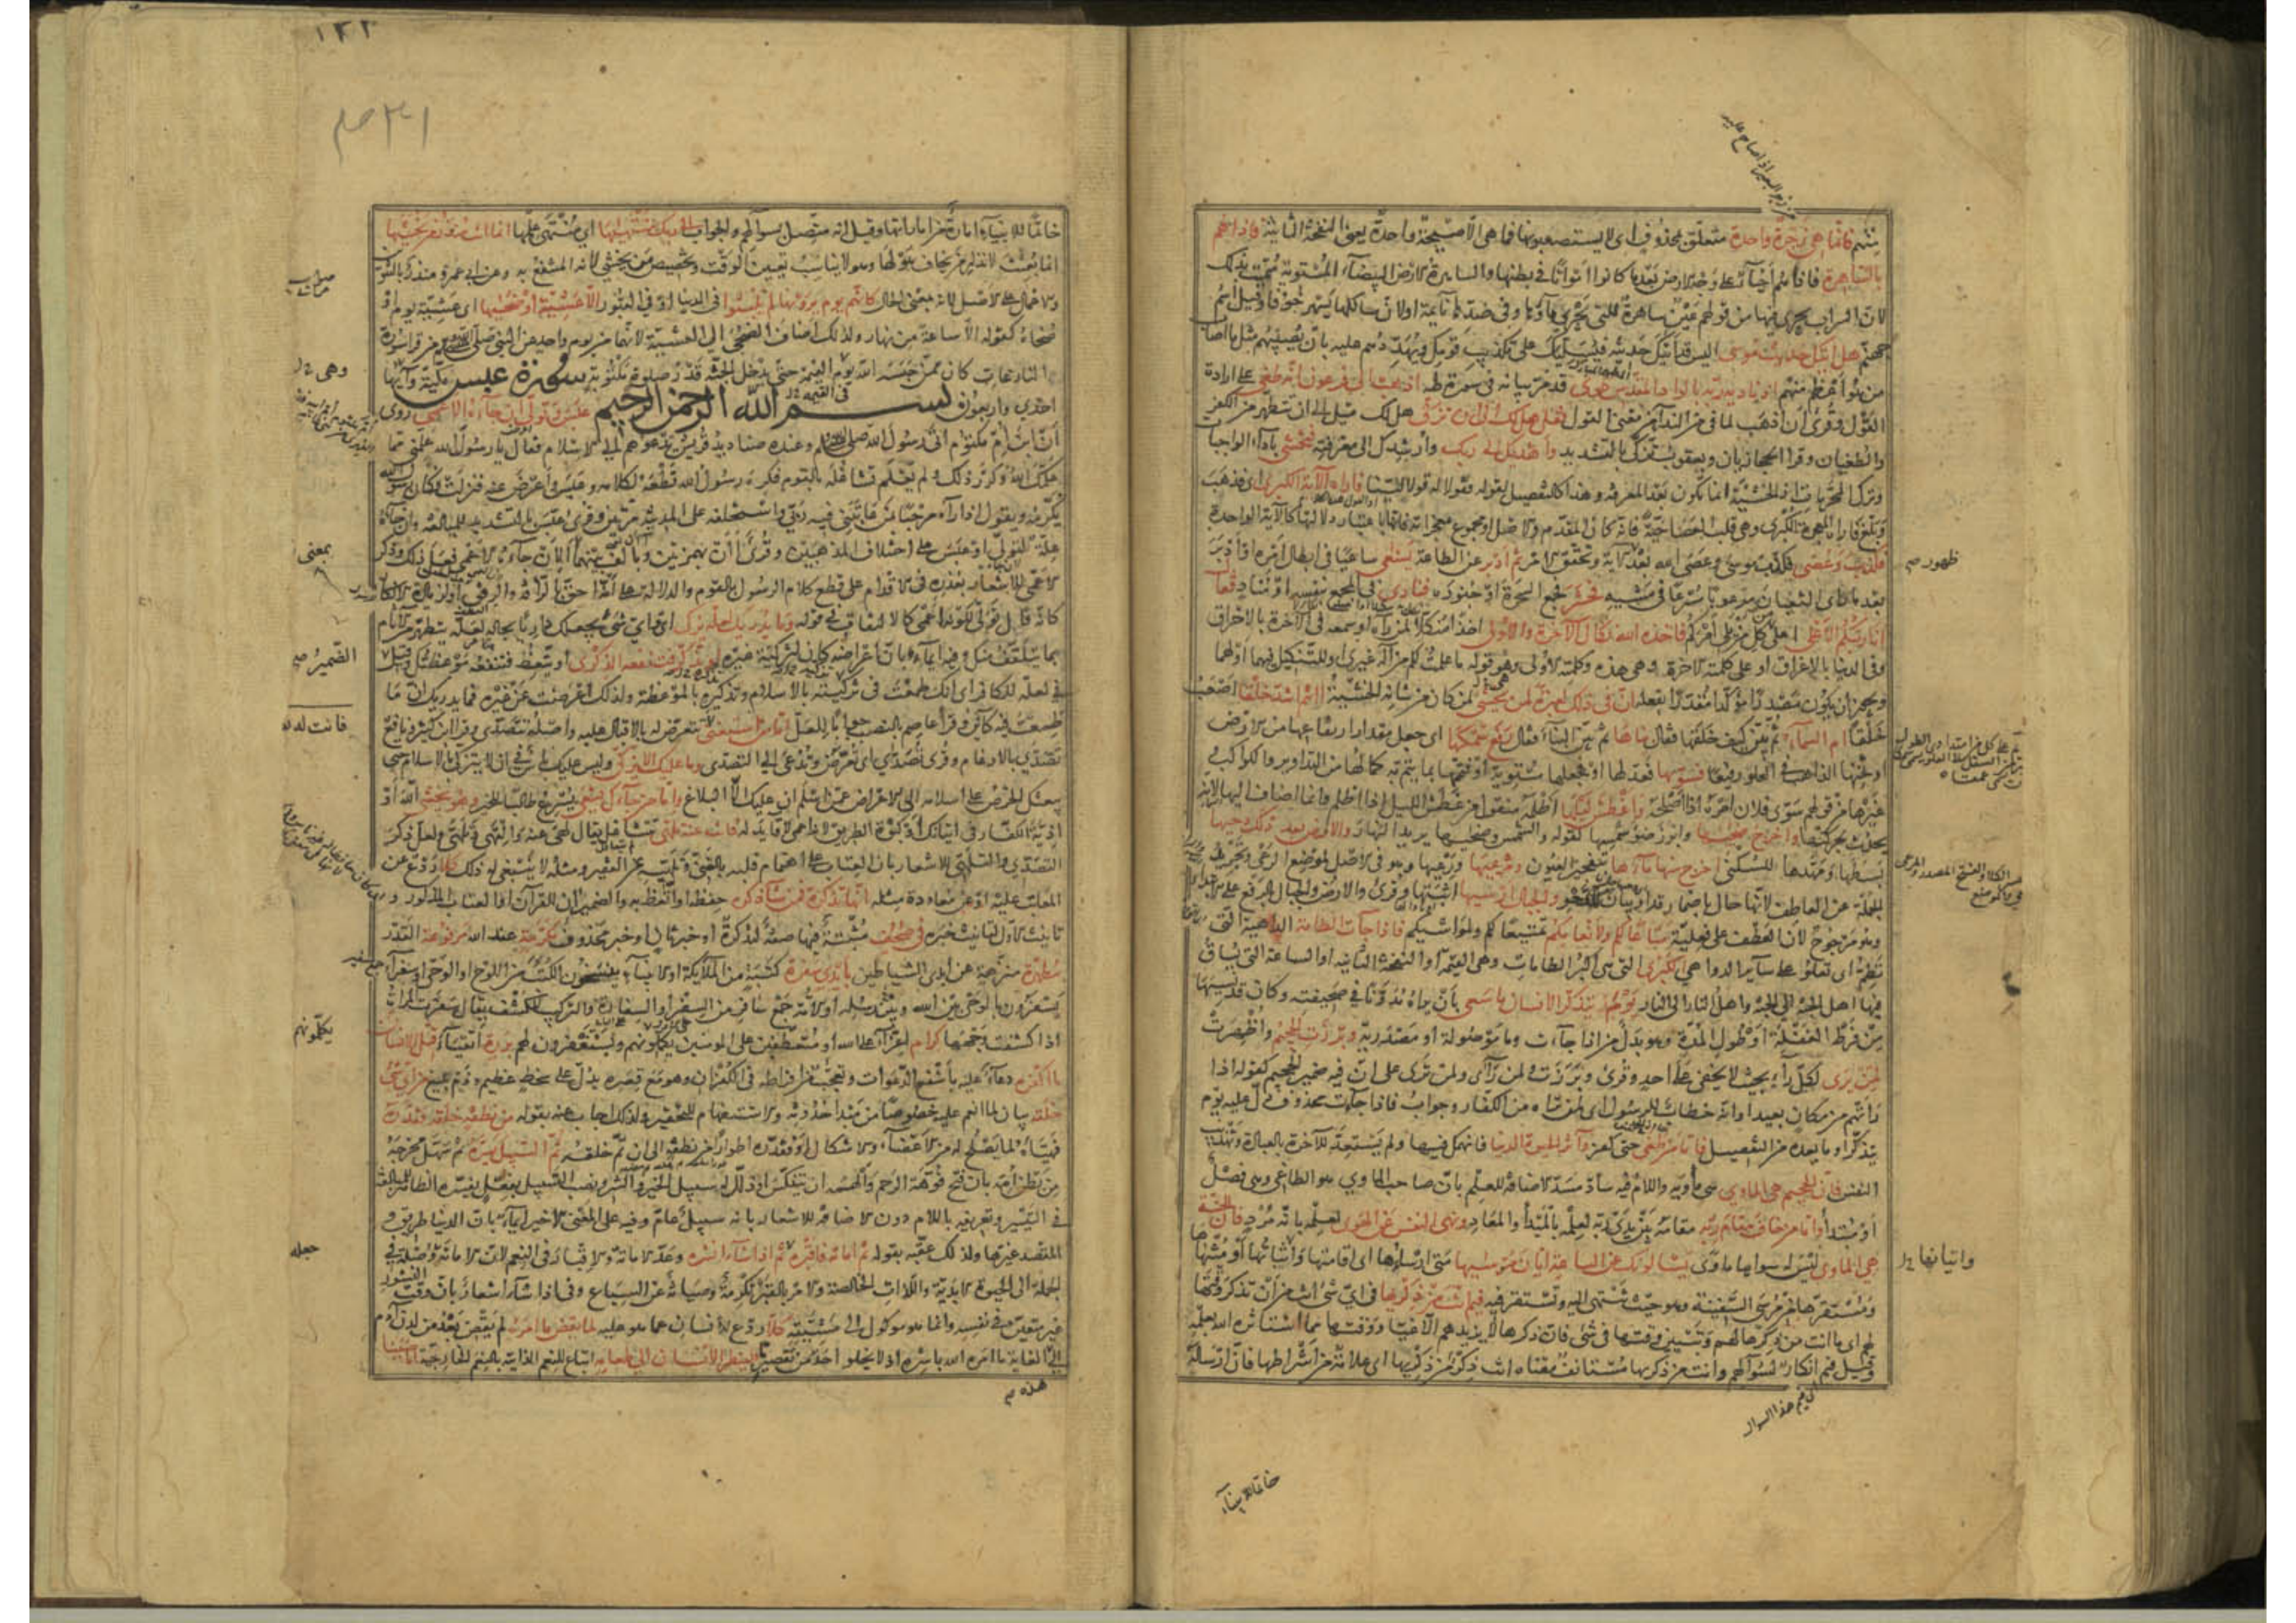 ينهم فانما هي زجرة واحدة متعلق بمحذوف اى لا يستصعبوها فما هي الا صيحة واحدة يعنى النفخة الثانية فاذا هم
بالساهرة فاذا هم احياء على وجه الارض بعد ما كانوا امواتا في بطنها والساهرة الارض البيضاء المستوية سميت بذلك
لان السراب يجرى فيها من قولهم عين ساهرة للتى يجرى ماؤها وفى ضدها نائمة او لان سالكها يسهر خوفا وقيل اسم
جهنم هل اتيك حديث موسى اليس قد اتيك حديثه فيسليك على تكذيب قومك ويهددهم عليه بان يصيبهم مثل ما اصاب
من هو اعظم منهم اذ ناديه ربه بالواد المقدس طوى قد مر بيانه في سورة طه اذهب الى فرعون انه طغى على ارادة
القول وقرئ ان اذهب لما في النداء من معنى القول فقل هل لك الى ان تزكى هل لك ميل الى ان تتطهر من الكفر
والطغيان وقرا الحجازيان ويعقوب تزكى بالتشديد واهديك الى ربك وارشدك الى معرفته فتخشى باداء الواجبات
وترك المحرمات اذ الخشية انما تكون بعد المعرفة وهذا كالتفصيل لقوله فقولا له قولا لينا فاراه الآية الكبرى اى فذهب
وبلغ فاراه المعجزة الكبرى وهى قلب العصا حية فانه كان المقدم والاصل او مجموع معجزاته فانها باعتبار دلالتها كالآية الواحدة
فكذب وعصى فكذب موسى وعصى الله بعد ظهور الآية وتحقق الامر ثم ادبر عن الطاعة يسعى ساعيا في ابطال امره او ادبر
بعد ما راى الثعبان مرعوبا مسرعا في مشيه فحشر فجمع السحرة او جنوده فنادى في المجمع بنفسه او بمناد فقال
انا ربكم الاعلى اعلى كل من يلى امركم فاخذه الله نكال الآخرة والاولى اخذا منكلا لمن رآه او سمعه في الآخرة بالاحراق
وفى الدنيا بالاغراق او على كلمته الآخرة وهى هذه وكلمته الاولى وهو قوله ما علمت لكم من اله غيرى او للتنكيل فيهما او لهما
ويجوز ان يكون مصدرا مؤكدا مقدرا بفعله ان في ذلك لعبرة لمن يخشى لمن كان من شانه الخشية ءانتم اشد خلقا اصعب
خلقا ام السماء ثم بين كيف خلقها فقال بناها ثم بين البناء فقال رفع سمكها اى جعل مقدار ارتفاعها من الارض
او ثخنها الذاهب في العلو رفيعا فسويها فعدلها او فجعلها مستوية او فتممها بما يتم به كمالها من التداوير والكواكب
غيرها من قولهم سوى فلان امره اذا اصلحه واغطش ليلها اظلمه منقول من غطش الليل اذا اظلم وانما اضاف اليها لانه
يحدث بحركتها واخرج ضحيها وابرز ضوء شمسها لقوله والشمس وضحيها يريد النهار والارض بعد ذلك دحيها
بسطها ومهدها للسكنى اخرج منها ماءها بتفجير العيون ومرعيها ورعيها وهو في الاصل لموضع الرعى وتجريد
الجملة عن العاطف لانها حال باضمار قد او بيان للدحو والجبال ارسيها اثبتها وقرئ والارض والجبال بالرفع على الابتداء
وهو مرجوح لان العطف على فعلية متاعا لكم ولانعامكم تمتيعا لكم ولمواشيكم فاذا جاءت الطامة الداهية التى
تطم اى تعلو على سائر الدواهى الكبرى التى هى اكبر الطامات وهى القيمة او النفخة الثانية او الساعة التى يساق
فيها اهل الجنة الى الجنة واهل النار الى النار يوم يتذكر الانسان ما سعى بان يراه مدونا في صحيفته وكان قد نسيها
من فرط الغفلة او طول المدة وهو بدل من اذا جاءت وما موصولة او مصدرية وبرزت الجحيم واظهرت
لمن يرى لكل راء بحيث لا يخفى على احد وقرئ وبرزت ولمن رآى ولمن ترى على ان فيه ضمير الجحيم كقوله اذا
رأتهم من مكان بعيد او انه خطاب للرسول اى لمن تراه من الكفار وجواب فاذا جاءت محذوف دل عليه يوم
يتذكر او ما بعده من التفصيل فاما من طغى حتى كفر وآثر الحيوة الدنيا فانهمك فيها ولم يستعد للآخرة بالعبادة وتهذيب
النفس فان الجحيم هي الماوى هى مأويه واللام فيه سادة مسد الاضافة للعلم بان صاحب الماوى هو الطاغى وهى فصل
او مبتدأ واما من خاف مقام ربه مقامه بين يدى ربه لعلمه بالمبدأ والمعاد ونهى النفس عن الهوى لعلمه بانه مرد فان الجنة
هي الماوى ليس له سواها ماوى يسئلونك عن الساعة ايان مرسيها متى ارساؤها اى اقامتها واثباتها او منتهاها
ومستقرها من مرسى السفينة وهو حيث تنتهى اليه وتستقر فيه فيم انت من ذكريها في اى شئ انت من ان تذكر وقتها
لهم اى ما انت من ذكرها لهم وتبيين وقتها في شئ فان ذكرها لا يزيدهم الا غيا ووقتها مما استاثره الله بعلمه
وقيل فيم انكار لسؤالهم وانت من ذكريها مستانف معناه انت ذكر من ذكريها اى علامة من اشراطها فان ارساله
ظهور صح
واتيانها
اى فيم هذا السوال
خاتما للانبياء
١٢٢
خاتما للانبياء امارة من اماراتها وقيل انه متصل بسؤالهم والجواب الى ربك منتهيها اى منتهى علمها انما انت منذر من يخشيها
انما بعثت لانذار من يخاف هولها وهو لا يناسب تعيين الوقت وتخصيص من يخشى لانه المنتفع به وعن ابى عمرو منذر بالتنوين
والاعمال على الاصل لانه بمعنى الحال كانهم يوم يرونها لم يلبثوا في الدنيا او في القبور الا عشية او ضحيها اى عشية يوم او
ضحاه كقوله الا ساعة من نهار ولذلك اضاف الضحى الى العشية لانهما من يوم واحد عن النبى صلى الله من قرا سورة
النازعات كان ممن حبسه الله يوم القيمة حتى يدخل الجنة قدر صلوة مكتوبة سورة عبس مكية وآيها
احدى واربعون بسم الله الرحمن الرحيم عبس وتولى ان جاءه الاعمى روى
ان ابن ام مكتوم اتى رسول الله صلى وعنده صناديد قريش يدعوهم الى الاسلام فقال يا رسول الله علمنى مما
علمك الله وكرر ذلك ولم يعلم تشاغله بالقوم فكره رسول الله قطعه لكلامه وعبس واعرض عنه فنزلت وكان رسول الله
يكرمه ويقول اذا رآه مرحبا بمن عاتبنى فيه ربى واستخلفه على المدينة مرتين وقرئ عبس بالتشديد للمبالغة وان جاءه
علة لتولى او عبس على اختلاف المذهبين وقرئ أان بهمزتين وبالف بينهما بمعنى ألان جاءه الاعمى فعل ذلك وذكر
الاعمى للاشعار بعذره في الاقدام على قطع كلام الرسول بالقوم والدلالة على انه احق بالرأفة والرفق او لزيادة الانكار
كانه قال تولى لكونه اعمى كالالتفات في قوله وما يدريك لعله يزكى اى واى شئ يجعلك داريا بحاله لعله يتطهر من الآثام
بما يتلقف منك وفيه ايماء بان اعراضه كان لتزكية غيره او يذكر فتنفعه الذكرى او يتعظ فتنفعه موعظتك وقيل
في لعله للكافر اى انك طمعت في تزكيته بالاسلام وتذكيره بالموعظة ولذلك اعرضت عن غيره فما يدريك ان ما
طمعت فيه كائن وقرأ عاصم بالنصب جوابا للعل اما من استغنى فانت له تصدى تتعرض له بالاقبال عليه واصله تتصدى وقرا ابن كثير ونافع
تصدى بالادغام وقرئ تصدى اى تعرض وتدعى الى التصدى وما عليك الا يزكى وليس عليك باس في ان لا يتزكى بالاسلام حتى
يبعثك الحرص على اسلامه الى الاعراض عمن اسلم ان عليك الا البلاغ واما من جاءك يسعى يسرع طالبا للخير وهو يخشى الله او
اذية الكفار في اتيانك او كبوة الطريق لانه اعمى لا قائد له فانت عنه تلهى تتشاغل يقال لهى عنه والتهى وتلهى ولعل ذكر
التصدى والتلهى للاشعار بان العتاب على اهتمام قلبه بالغنى وتلهيه عن الفقير ومثله لا ينبغى له ذلك كلا ردع عن
المعاتب عليه او عن معاودة مثله انها تذكرة فمن شاء ذكره حفظه او اتعظ به والضميران للقرآن او العتاب المذكور و
تانيث الاول لتانيث خبره في صحف مثبتة فيها صفة لتذكرة او خبر ثان او خبر محذوف مكرمة عند الله مرفوعة القدر
مطهرة منزهة عن ايدى الشياطين بايدى سفرة كتبة من الملائكة او الانبياء ينسخون الكتب من اللوح او الوحى او سفراء
يسفرون بالوحى بين الله ورسله او الامة جمع سافر من السفر او السفارة والتركيب للكشف يقال سفرت المراة
اذا كشفت وجهها كرام اعزاء على الله او متعطفين على المومنين يكلمونهم ويستغفرون لهم بررة اتقياء قتل الانسان
ما اكفره دعاء عليه باشنع الدعوات وتعجب من افراطه في الكفران وهو مع قصره يدل على سخط عظيم وذم بليغ من اى شئ
خلقه بيان لما انعم عليه خصوصا من مبدا حدوثه والاستفهام للتحقير ولذلك اجاب عنه بقوله من نطفة خلقه فقدره
فهيأه لما يصلح له من الاعضاء والاشكال او فقدره اطوارا من نطفة الى ان تم خلقه ثم السبيل يسره ثم سهل مخرجه
من بطن امه بان فتح فوهة الرحم والهمه ان ينتكس او ذلل له سبيل الخير والشر ونصب السبيل بفعل يفسره الظاهر للمبالغة
في التيسير وتعريفه باللام دون الاضافة للاشعار بانه سبيل عام وفيه على المعنى الاخير ايماء بان الدنيا طريق و
المقصد غيرها ولذلك عقبه بقوله ثم اماته فاقبره ثم اذا شاء انشره وعد الاماتة والاقبار في النعم لان الاماتة وصلة في
الجملة الى الحيوة الابدية واللذات الخالصة والامر بالقبر تكرمة وصيانة عن السباع وفى اذا شاء اشعار بان وقت النشور
غير متعين في نفسه وانما هو موكول الى مشيته كلا ردع للانسان عما هو عليه لما يقض ما امره لم يقض بعد من لدن آدم
الى هذه الغاية ما امره الله باسره اذ لا يخلو احد من تقصير ما فلينظر الانسان الى طعامه اتباع للنعم الذاتية بالنعم الخارجية انا صببنا
وهى
بمعنى
الضمير صح
فانت له
يكلمونهم
جعله
هذه